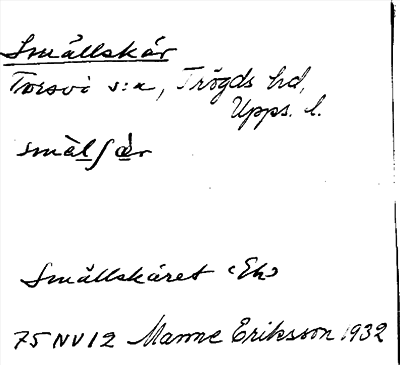 Smällskär
Torsvi s:n, Trögds hd,
Upps. l.
smälʃær
Smällskäret (Ek)
75 NV 12 Manne Eriksson 1932